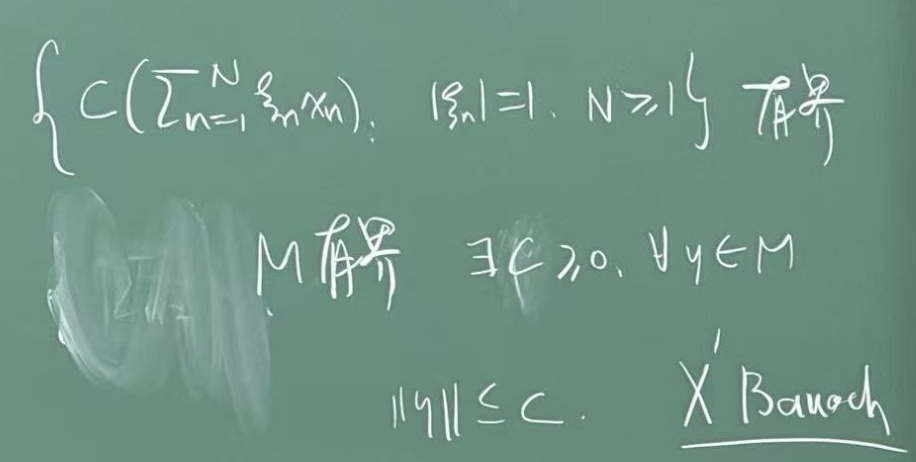 {C(∑ₙ₌₁ᴺ ξₙxₙ), |ξₙ|=1. N≥1} 有界
M有界 ∃C≥0. ∀y∈M
‖y‖≤C. X' Banach